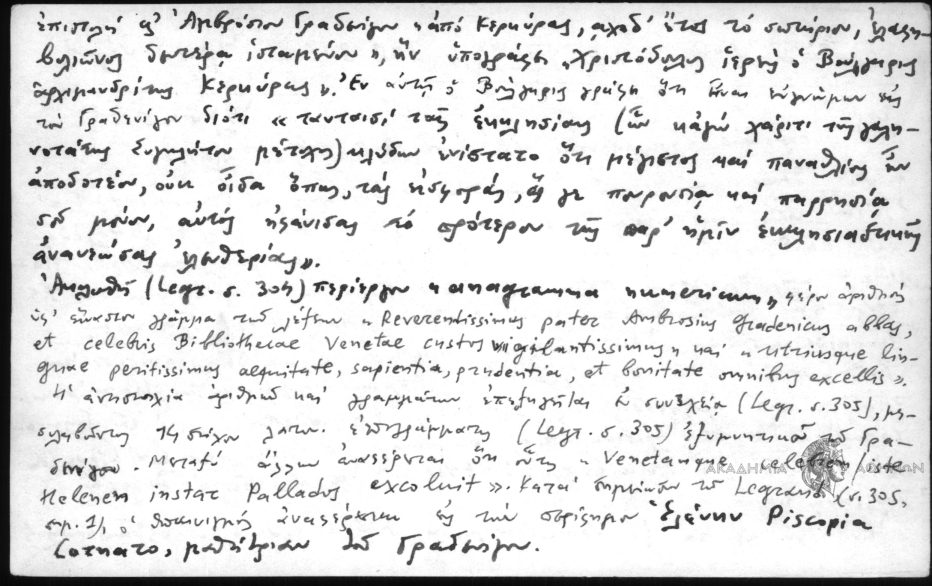 ἐπιστολὴ πρὸς Ἀμβρόσιον Γραδενῖγον «ἀπὸ Κερκύρας, αχοδ' ἔτος τὸ σωτήριον, ἐλαφη-
βολιῶνος δευτέρᾳ ἱσταμένου», ἣν ὑπογράφει «Χριστόδουλος ἱερεὺς ὁ Βούλγαρις
ἀρχιμανδρίτης Κερκύρας». Ἐν αὐτῇ ὁ Βούλγαρις γράφει ὅτι εἶναι εὐγνώμων εἰς
τὸν Γραδενῖγον διότι « ταυταισὶ ταῖς ἐκκλησίαις (ὧν κἀγὼ χάριτι τῆς γαλη-
νοτάτης Συγκλήτου μέτοχος) κλύδων ἐνίστατο ὅτι μέγιστος καὶ παναθλίως ἦν
ἀποδοτέον, οὐκ οἶδα ὅπως, τὰς εἰσφοράς, εἰ γε παρουσίᾳ καὶ παρρησίᾳ
σοῦ μόνου, αὐτὸς ἠφάνισας τὸ πρότερον τῆς παρ' ἡμῖν ἐκκλησιαστικῆς
ἀνανεώσας ἐλευθερίας».
Ἀκολουθεῖ (Legr. σ. 304) περίεργον «anagramma numericum» φέρον ἀριθμοὺς
εἰς ἕκαστον γράμμα τῶν λέξεων «Reverentissimus pater Ambrosius Gradenicus abbas,
et celebris Bibliothecae Venetae custos vigilantissimus» καὶ «utriusque lin-
guae peritissimus aequitate, sapientia, prudentia, et bonitate omnibus excellis».
Ἡ ἀντιστοιχία ἀριθμῶν καὶ γραμμάτων ἐπεξηγεῖται ἐν συνεχείᾳ (Legr. σ. 305),
14στίχου λατιν. ἐπιγράμματος (Legr. σ. 305) ἐξυμνητικοῦ τοῦ Γρα-
δενίγου. Μεταξὺ ἄλλων ἀναφέρεται ὅτι οὗτος « Venetamque iste
Helenem instar Pallados excoluit ». Κατὰ σημείωσιν τοῦ Legrand (σ. 305,
σημ. 1), ὁ ὑπαινιγμὸς ἀναφέρεται εἰς τὴν περίφημον Ἑλένην Piscopia
Cornaro, μαθήτριαν τοῦ Γραδενίγου.
ΑΚΑΔΗΜΙΑ ΑΘΗΝΩΝ